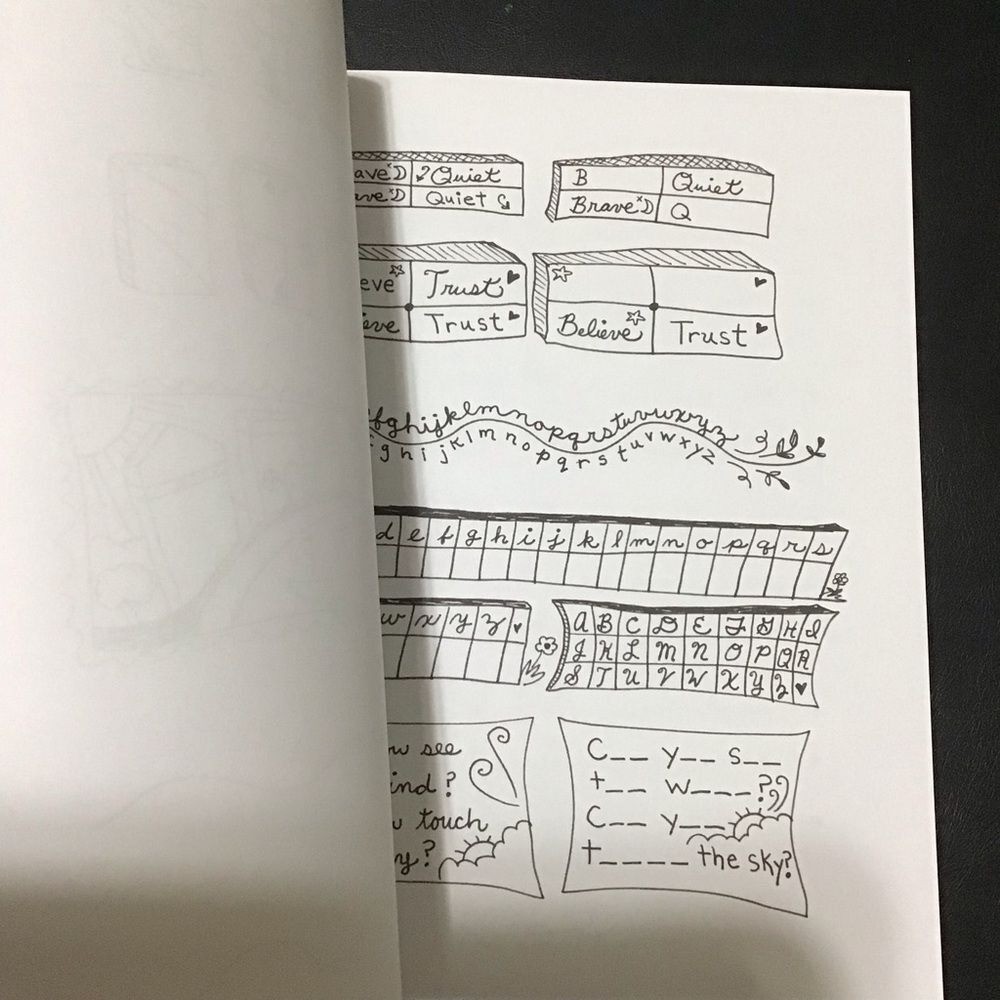 Quiet
Quiet
B Quiet
Brave Q
Trust
Trust
Believe Trust
f g h i j k l m n o p q r s t u v w x y z
g h i j k l m n o p q r s t u v w x y z
d e f g h i j k l m n o p q r s
w x y z
A B C D E F G H I
J K L M N O P Q R
S T U V W X Y Z
see
?
touch
?
C__ y__ s__
t__ w___?
C__ y__
t____ the sky?